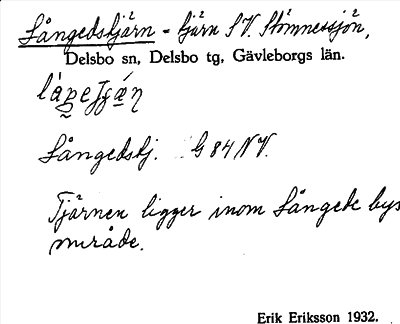 Långedstjärn - tjärn S V. Stömnessjön,
Delsbo sn, Delsbo tg, Gävleborgs län.
Långedstj. G 84 NV.
Tjärnen ligger inom Långede bys
område.
Erik Eriksson 1932.